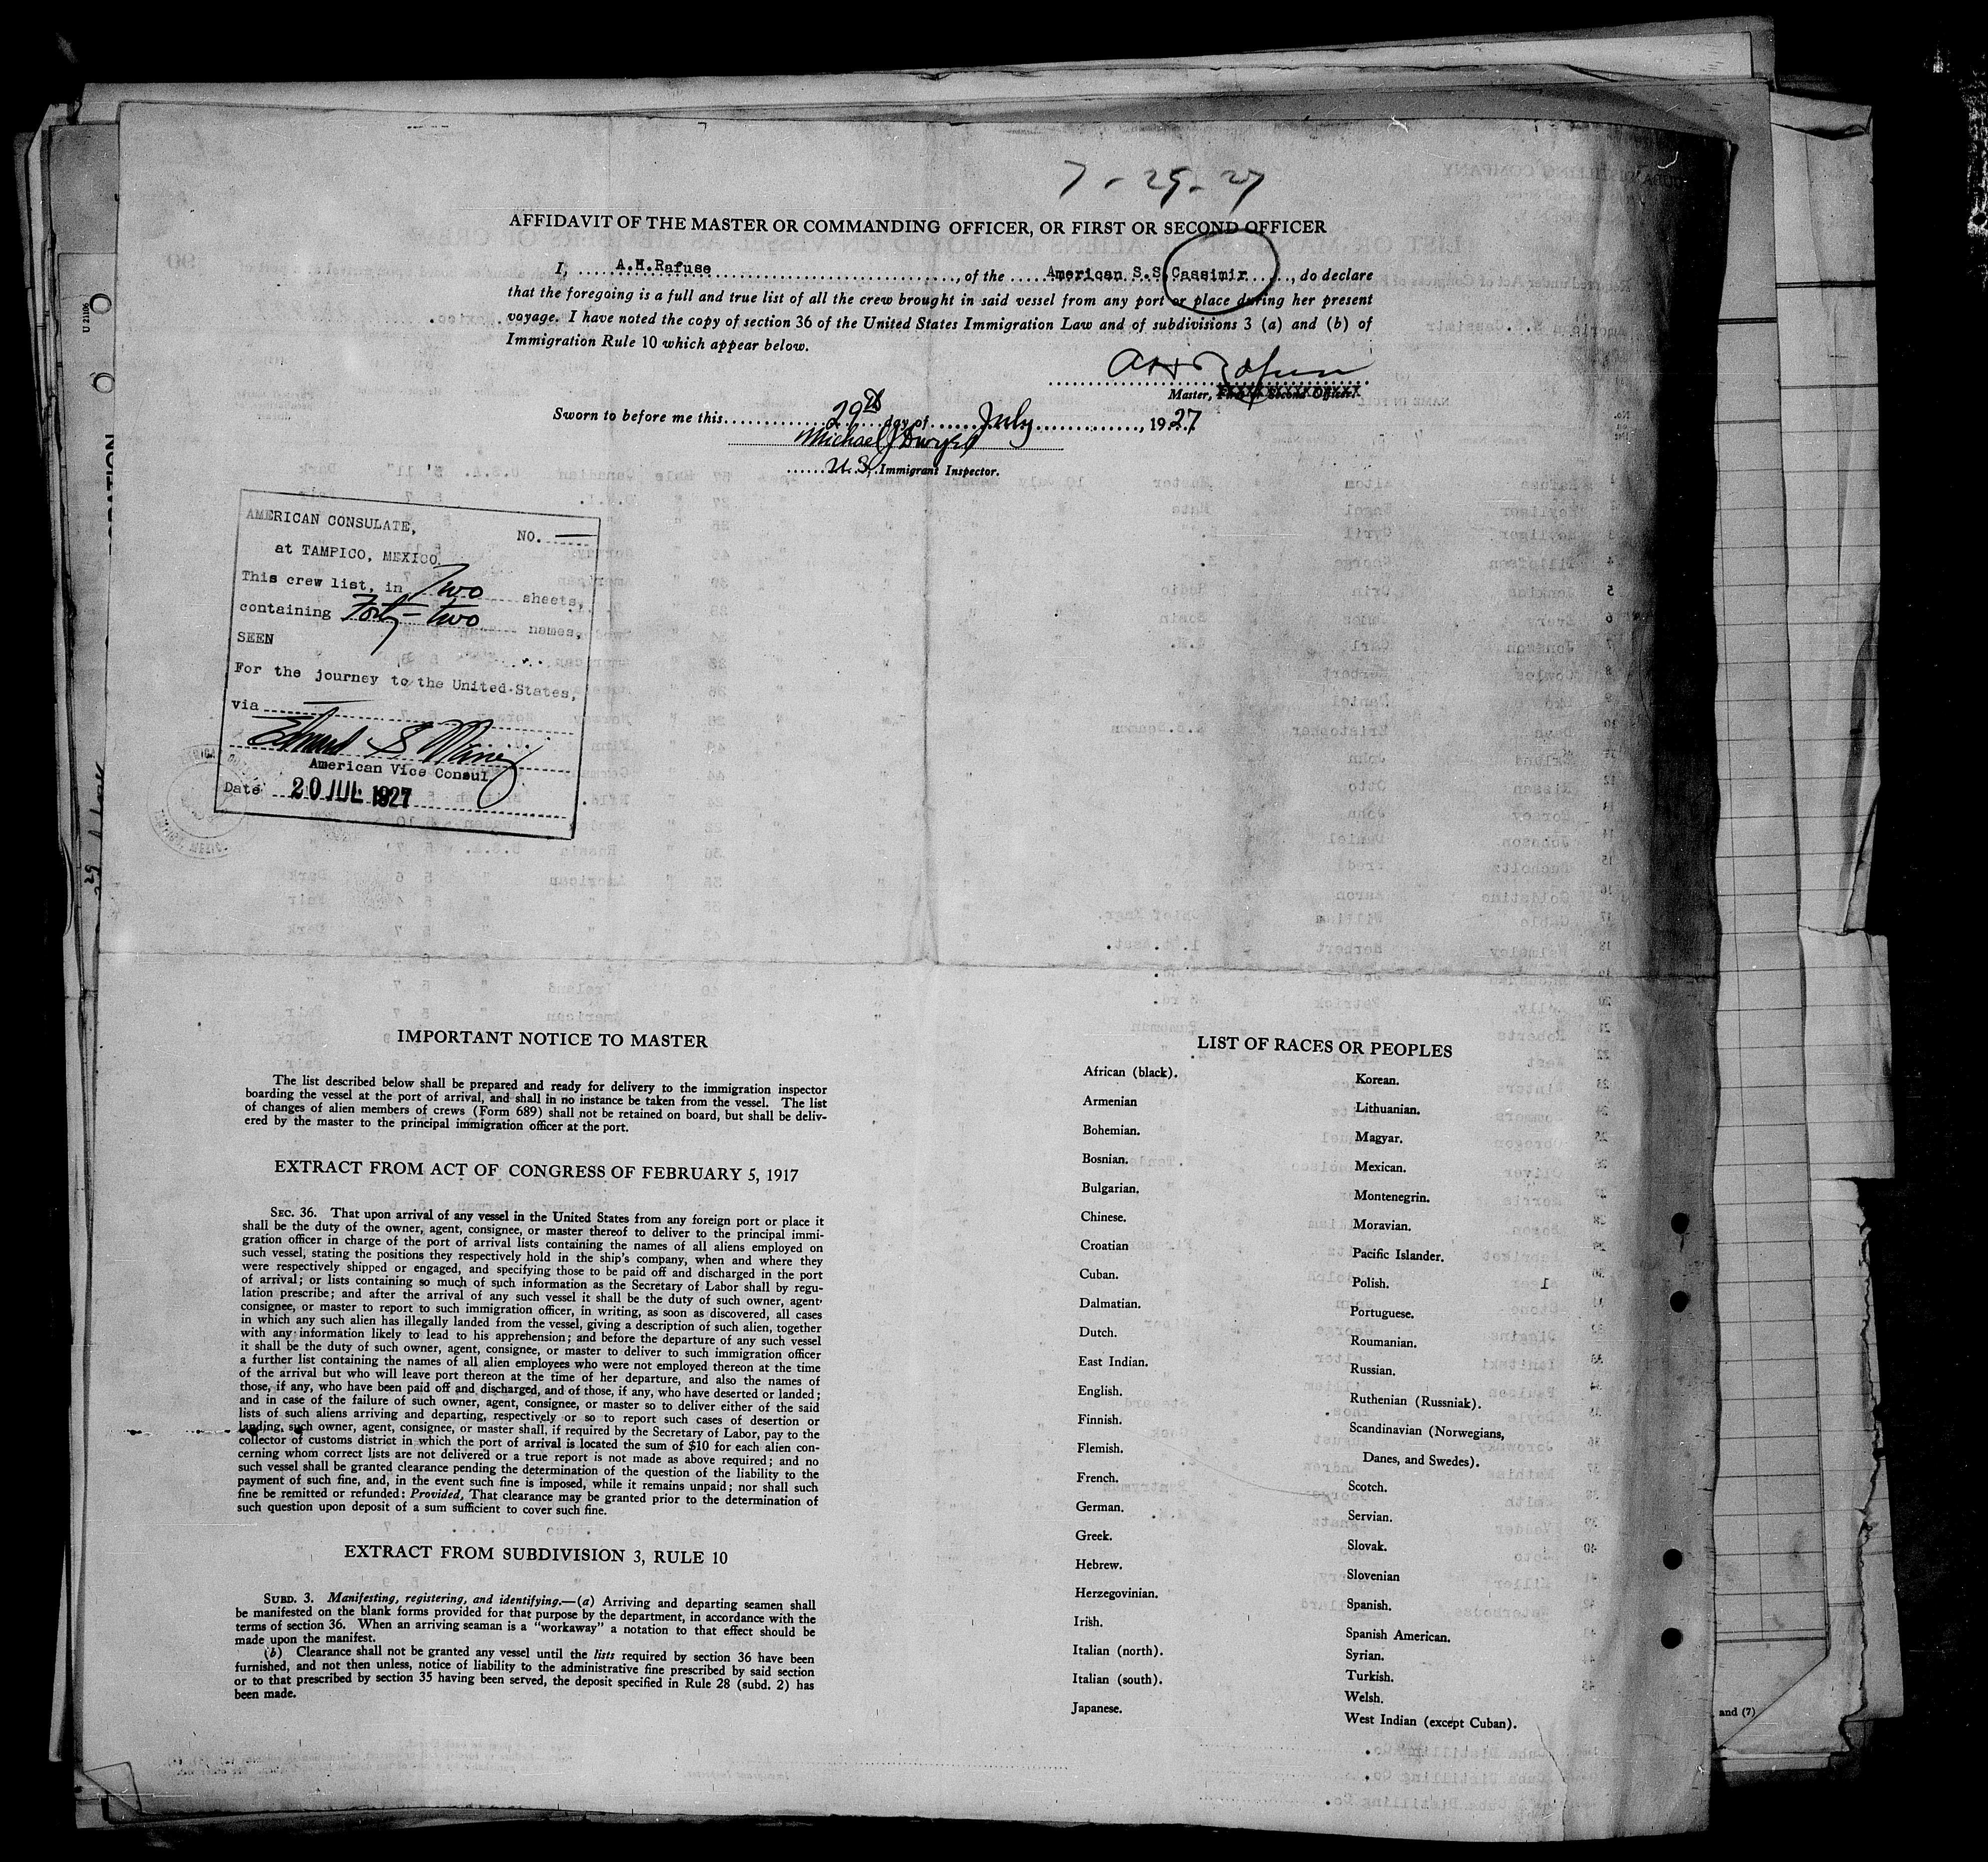 7-29-27
AFFIDAVIT OF THE MASTER OR COMMANDING OFFICER, OR FIRST OR SECOND OFFICER
I, A.H.Rafuse, of the American S.S. Cassimir, do declare
that the foregoing is a full and true list of all the crew brought in said vessel from any port or place during her present
voyage. I have noted the copy of section 36 of the United States Immigration Law and of subdivisions 3 (a) and (b) of
Immigration Rule 10 which appear below.
A H Rafuse
Master, First or Second Officer.
Sworn to before me this 29th day of July, 1927
Michael J Dwyer
U.S. Immigrant Inspector.
AMERICAN CONSULATE,
NO. —
at TAMPICO, MEXICO.
This crew list, in Two sheets,
containing Forty-two names,
SEEN
For the journey to the United States,
via —
Edward S Maney
American Vice Consul
Date 20 JUL 1927
IMPORTANT NOTICE TO MASTER
The list described below shall be prepared and ready for delivery to the immigration inspector
boarding the vessel at the port of arrival, and shall in no instance be taken from the vessel. The list
of changes of alien members of crews (Form 689) shall not be retained on board, but shall be deliv-
ered by the master to the principal immigration officer at the port.
EXTRACT FROM ACT OF CONGRESS OF FEBRUARY 5, 1917
SEC. 36. That upon arrival of any vessel in the United States from any foreign port or place it
shall be the duty of the owner, agent, consignee, or master thereof to deliver to the principal immi-
gration officer in charge of the port of arrival lists containing the names of all aliens employed on
such vessel, stating the positions they respectively hold in the ship's company, when and where they
were respectively shipped or engaged, and specifying those to be paid off and discharged in the port
of arrival; or lists containing so much of such information as the Secretary of Labor shall by regu-
lation prescribe; and after the arrival of any such vessel it shall be the duty of such owner, agent,
consignee, or master to report to such immigration officer, in writing, as soon as discovered, all cases
in which any such alien has illegally landed from the vessel, giving a description of such alien, together
with any information likely to lead to his apprehension; and before the departure of any such vessel
it shall be the duty of such owner, agent, consignee, or master to deliver to such immigration officer
a further list containing the names of all alien employees who were not employed thereon at the time
of the arrival but who will leave port thereon at the time of her departure, and also the names of
those, if any, who have been paid off and discharged, and of those, if any, who have deserted or landed;
and in case of the failure of such owner, agent, consignee, or master so to deliver either of the said
lists of such aliens arriving and departing, respectively or so to report such cases of desertion or
landing, such owner, agent, consignee, or master shall, if required by the Secretary of Labor, pay to the
collector of customs district in which the port of arrival is located the sum of $10 for each alien con-
cerning whom correct lists are not delivered or a true report is not made as above required; and no
such vessel shall be granted clearance pending the determination of the question of the liability to the
payment of such fine, and, in the event such fine is imposed, while it remains unpaid; nor shall such
fine be remitted or refunded: Provided, That clearance may be granted prior to the determination of
such question upon deposit of a sum sufficient to cover such fine.
EXTRACT FROM SUBDIVISION 3, RULE 10
SUBD. 3. Manifesting, registering, and identifying.—(a) Arriving and departing seamen shall
be manifested on the blank forms provided for that purpose by the department, in accordance with the
terms of section 36. When an arriving seaman is a "workaway" a notation to that effect should be
made upon the manifest.
(b) Clearance shall not be granted any vessel until the lists required by section 36 have been
furnished, and not then unless, notice of liability to the administrative fine prescribed by said section
or to that prescribed by section 35 having been served, the deposit specified in Rule 28 (subd. 2) has
been made.
LIST OF RACES OR PEOPLES
African (black).
Armenian
Bohemian.
Bosnian.
Bulgarian.
Chinese.
Croatian
Cuban.
Dalmatian.
Dutch.
East Indian.
English.
Finnish.
Flemish.
French.
German.
Greek.
Hebrew.
Herzegovinian.
Irish.
Italian (north).
Italian (south).
Japanese.
Korean.
Lithuanian.
Magyar.
Mexican.
Montenegrin.
Moravian.
Pacific Islander.
Polish.
Portuguese.
Roumanian.
Russian.
Ruthenian (Russniak).
Scandinavian (Norwegians,
Danes, and Swedes).
Scotch.
Servian.
Slovak.
Slovenian
Spanish.
Spanish American.
Syrian.
Turkish.
Welsh.
West Indian (except Cuban).
and (7)